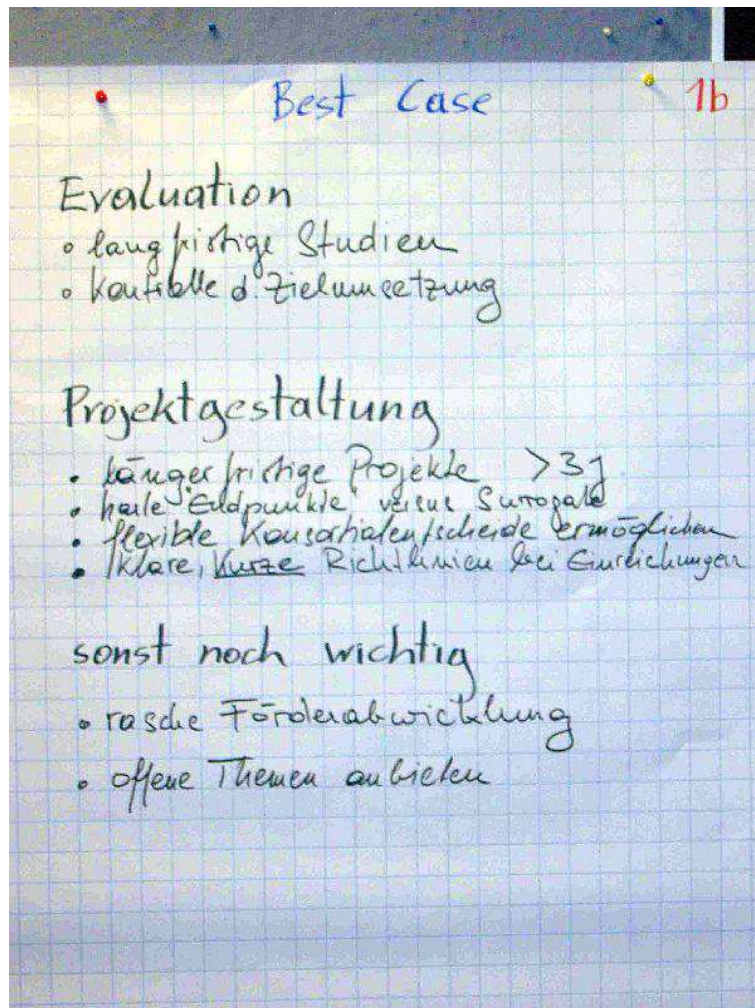 Best Case 1b
Evaluation
• langfristige Studien
• Kontrolle d. Zielumsetzung
Projektgestaltung
• längerfristige Projekte >3J
• harte "Endpunkte" versus Surrogate
• flexible Konsortialentscheide ermöglichen
• klare, kurze Richtlinien bei Einreichungen
sonst noch wichtig
• rasche Förderabwicklung
• offene Themen anbieten